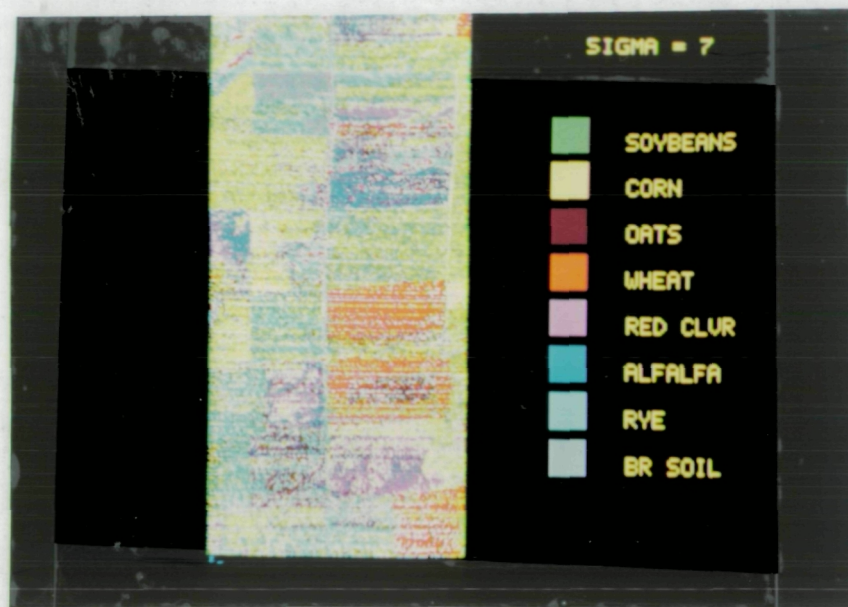 SIGMA = 7
SOYBEANS
CORN
OATS
WHEAT
RED CLVR
ALFALFA
RYE
BR SOIL